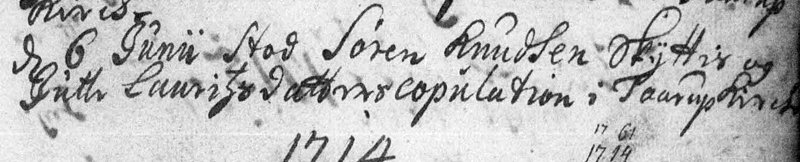 Kirch
d 6 Junii stod Søren Knudsen Skÿttis og
Giitte Lauritzs datters copulation i Taarup Kirch
1714
17 61
1714